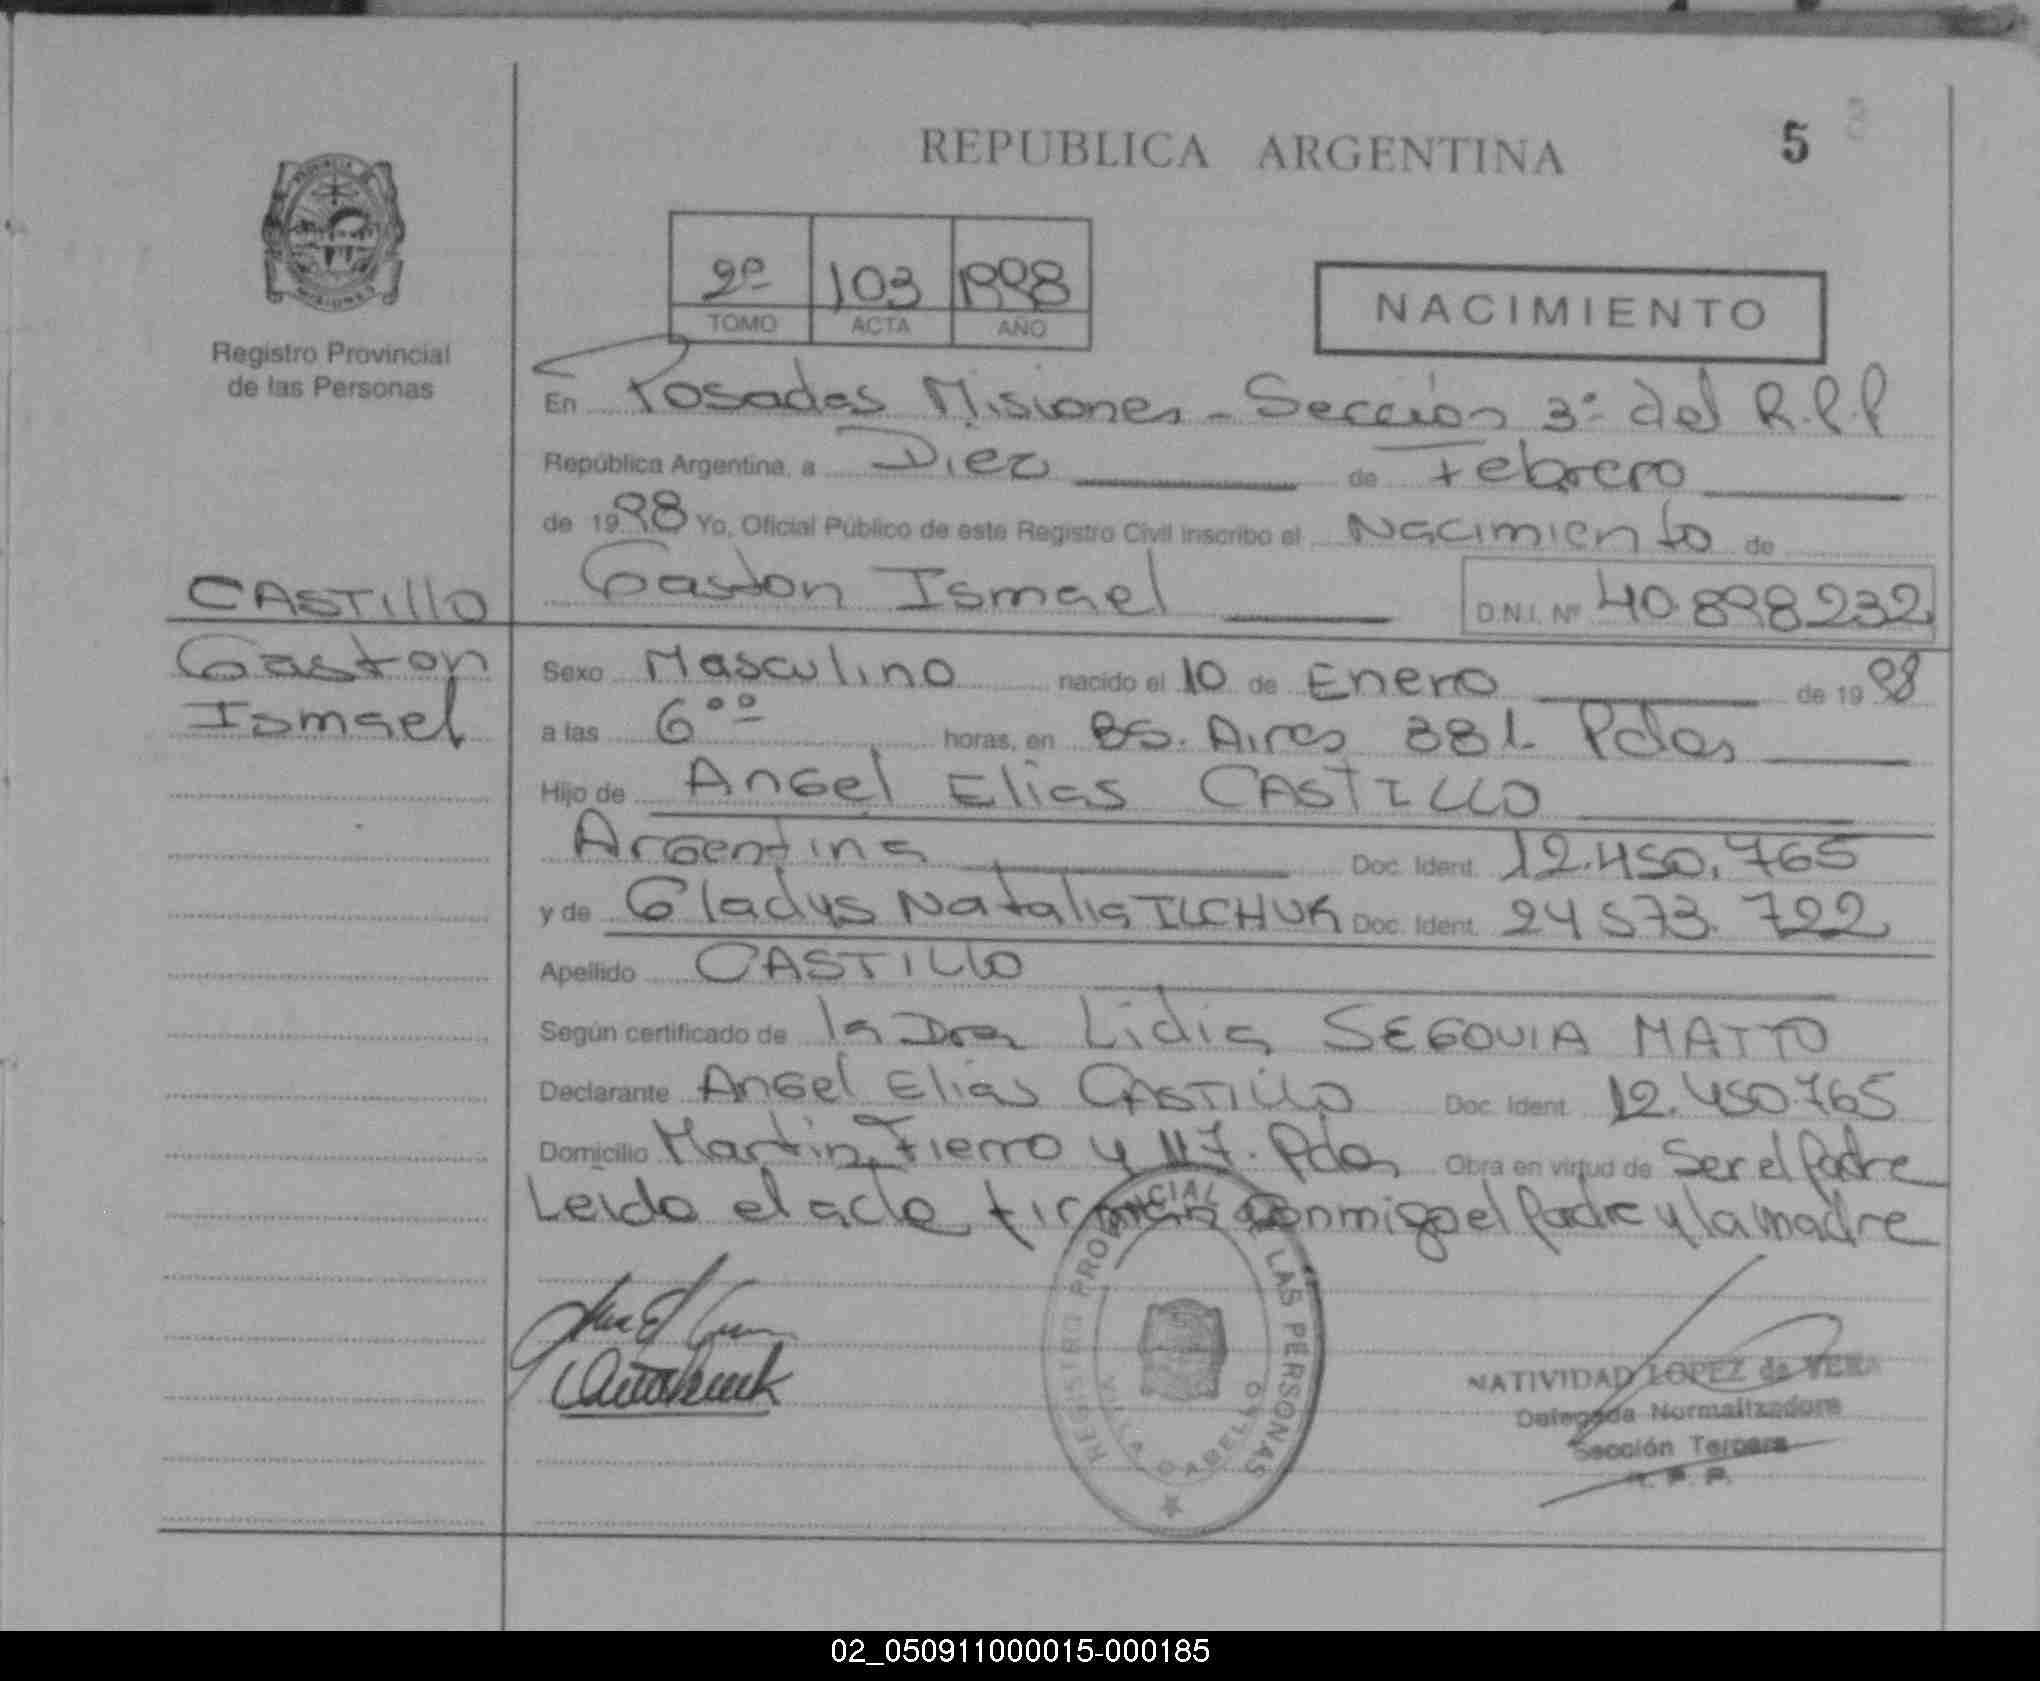 REPUBLICA ARGENTINA
5
PROVINCIA
MISIONES
Registro Provincial
de las Personas
2º 103 1998
TOMO ACTA AÑO
NACIMIENTO
En Posadas Misiones - Sección 3º del R.P.P
República Argentina, a Diez de Febrero
de 1998 Yo, Oficial Público de este Registro Civil inscribo el Nacimiento de
CASTILLO
Gaston Ismael D.N.I. Nº 40.898232
Gaston
Ismael
Sexo Masculino nacido el 10 de Enero de 1998
a las 6ºº horas, en BS. Aires 881. Pdas
Hijo de Angel Elias CASTILLO
Argentina Doc. Ident. 12.450.765
y de Gladys Natalia ILCHUK Doc. Ident. 24 573.722
Apellido CASTILLO
Según certificado de la Dra Lidia SEGOVIA MATTO
Declarante Angel Elias CASTILLO Doc. Ident. 12.450765
Domicilio Martin Fierro y 117. Pdas Obra en virtud de Ser el Padre
Leido el acta firman conmigo el Padre y la madre
REGISTRO PROVINCIAL DE LAS PERSONAS
VILLA CABELLO
NATIVIDAD LOPEZ de VERA
Delegada Normalizadora
Sección Tercera
R. P. P.
02_050911000015-000185